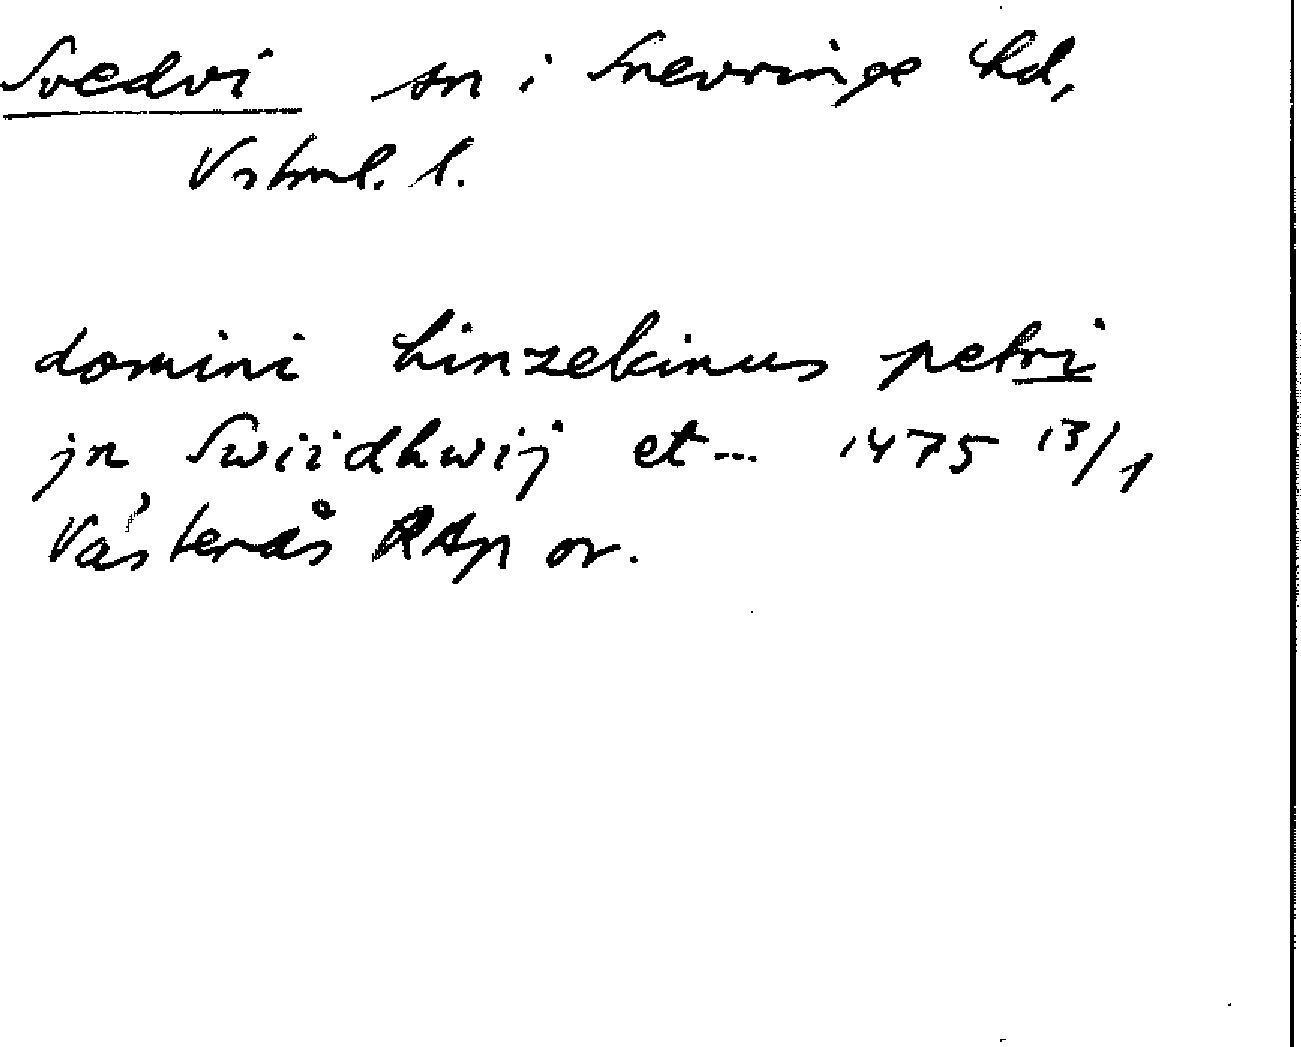 Svedvi sn i Snevringe hd,
Vstml. l.
domini hinzekinus petri
jn Swiidhwij et... 1475 13/1
Västerås RAp or.